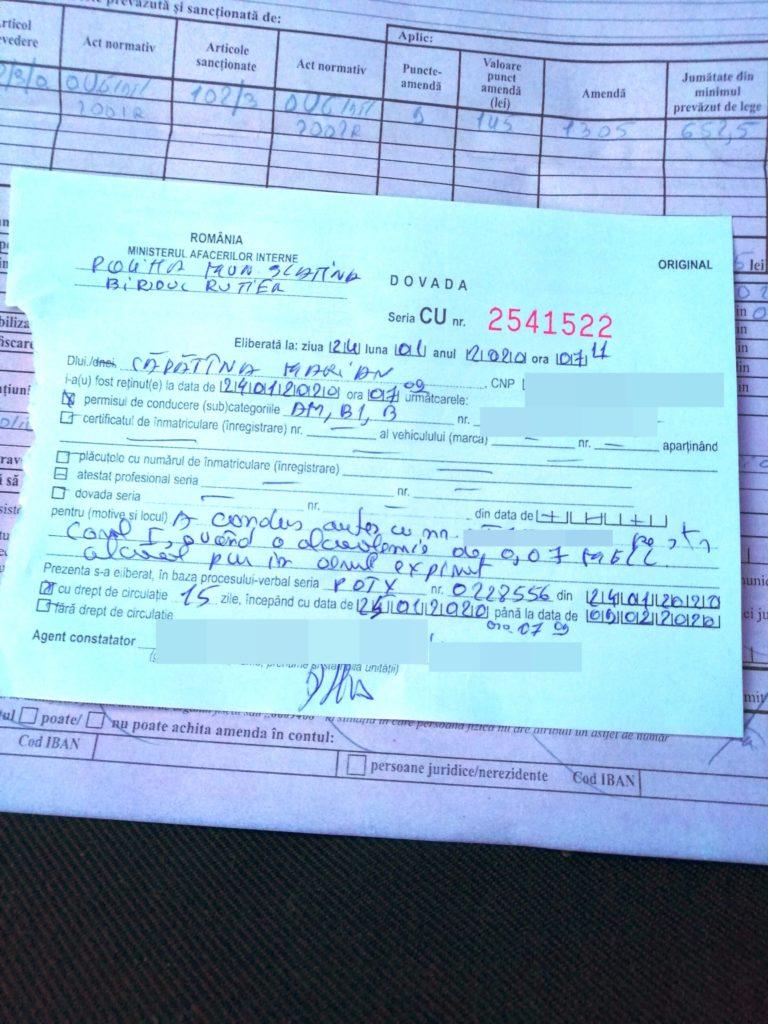 prevăzută și sancționată de:
Aplic:
Articol
prevedere
Act normativ
Articole
sancționate
Act normativ
Puncte-
amendă
Valoare
punct
amendă
(lei)
Amendă
Jumătate din
minimul
prevăzut de lege
OUG 195/ 102/3 OUG 195/ 9 145 1305 652,5
2002R 2002R
ROMÂNIA
MINISTERUL AFACERILOR INTERNE
POLIȚIA MUN SLATINA
BIROUL RUTIER
ORIGINAL
DOVADA
Seria CU nr. 2541522
Eliberată la: ziua 24 luna 01 anul 2020 ora 07
Dlui./dnei CĂPĂȚÎNA MARIAN , CNP
i-a(u) fost reținut(e) la data de 24012020 ora 07 09 următoarele:
permisul de conducere (sub)categoriile AM, B1, B nr.
certificatul de înmatriculare (înregistrare) nr. al vehiculului (marca) nr. aparținând
plăcuțele cu numărul de înmatriculare (înregistrare)
atestat profesional seria nr.
dovada seria nr. din data de
pentru (motive și locul) A condus auto cu nr. pe
având o alcoolemie de 0,07 mg/l
alcool pur in aerul expirat
Prezenta s-a eliberat, în baza procesului-verbal seria POTX nr. 0228556 din 24012020
cu drept de circulație 15 zile, începând cu data de 25012020 până la data de 09022020
fără drept de circulație ora 07 09
Agent constatator
poate/ nu poate achita amenda în contul:
Cod IBAN
persoane juridice/nerezidente Cod IBAN